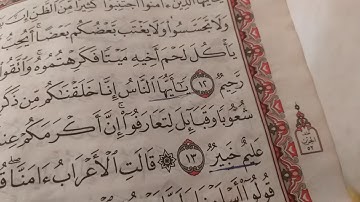 يَٰٓأَيُّهَا الَّذِينَ ءَامَنُوا اجْتَنِبُوا كَثِيرًا مِّنَ الظَّنِّ إِنَّ
وَلَا تَجَسَّسُوا وَلَا يَغْتَب بَّعْضُكُم بَعْضًا أَيُحِبُّ
يَأْكُلَ لَحْمَ أَخِيهِ مَيْتًا فَكَرِهْتُمُوهُ وَاتَّقُوا
رَحِيمٌ ١٢ يَٰٓأَيُّهَا النَّاسُ إِنَّا خَلَقْنَٰكُم مِّن ذَكَرٍ
شُعُوبًا وَقَبَآئِلَ لِتَعَارَفُوٓا إِنَّ أَكْرَمَكُمْ عِندَ
عَلِيمٌ خَبِيرٌ ١٣ قَالَتِ الْأَعْرَابُ ءَامَنَّا
قُولُوٓا أَسْلَمْنَا